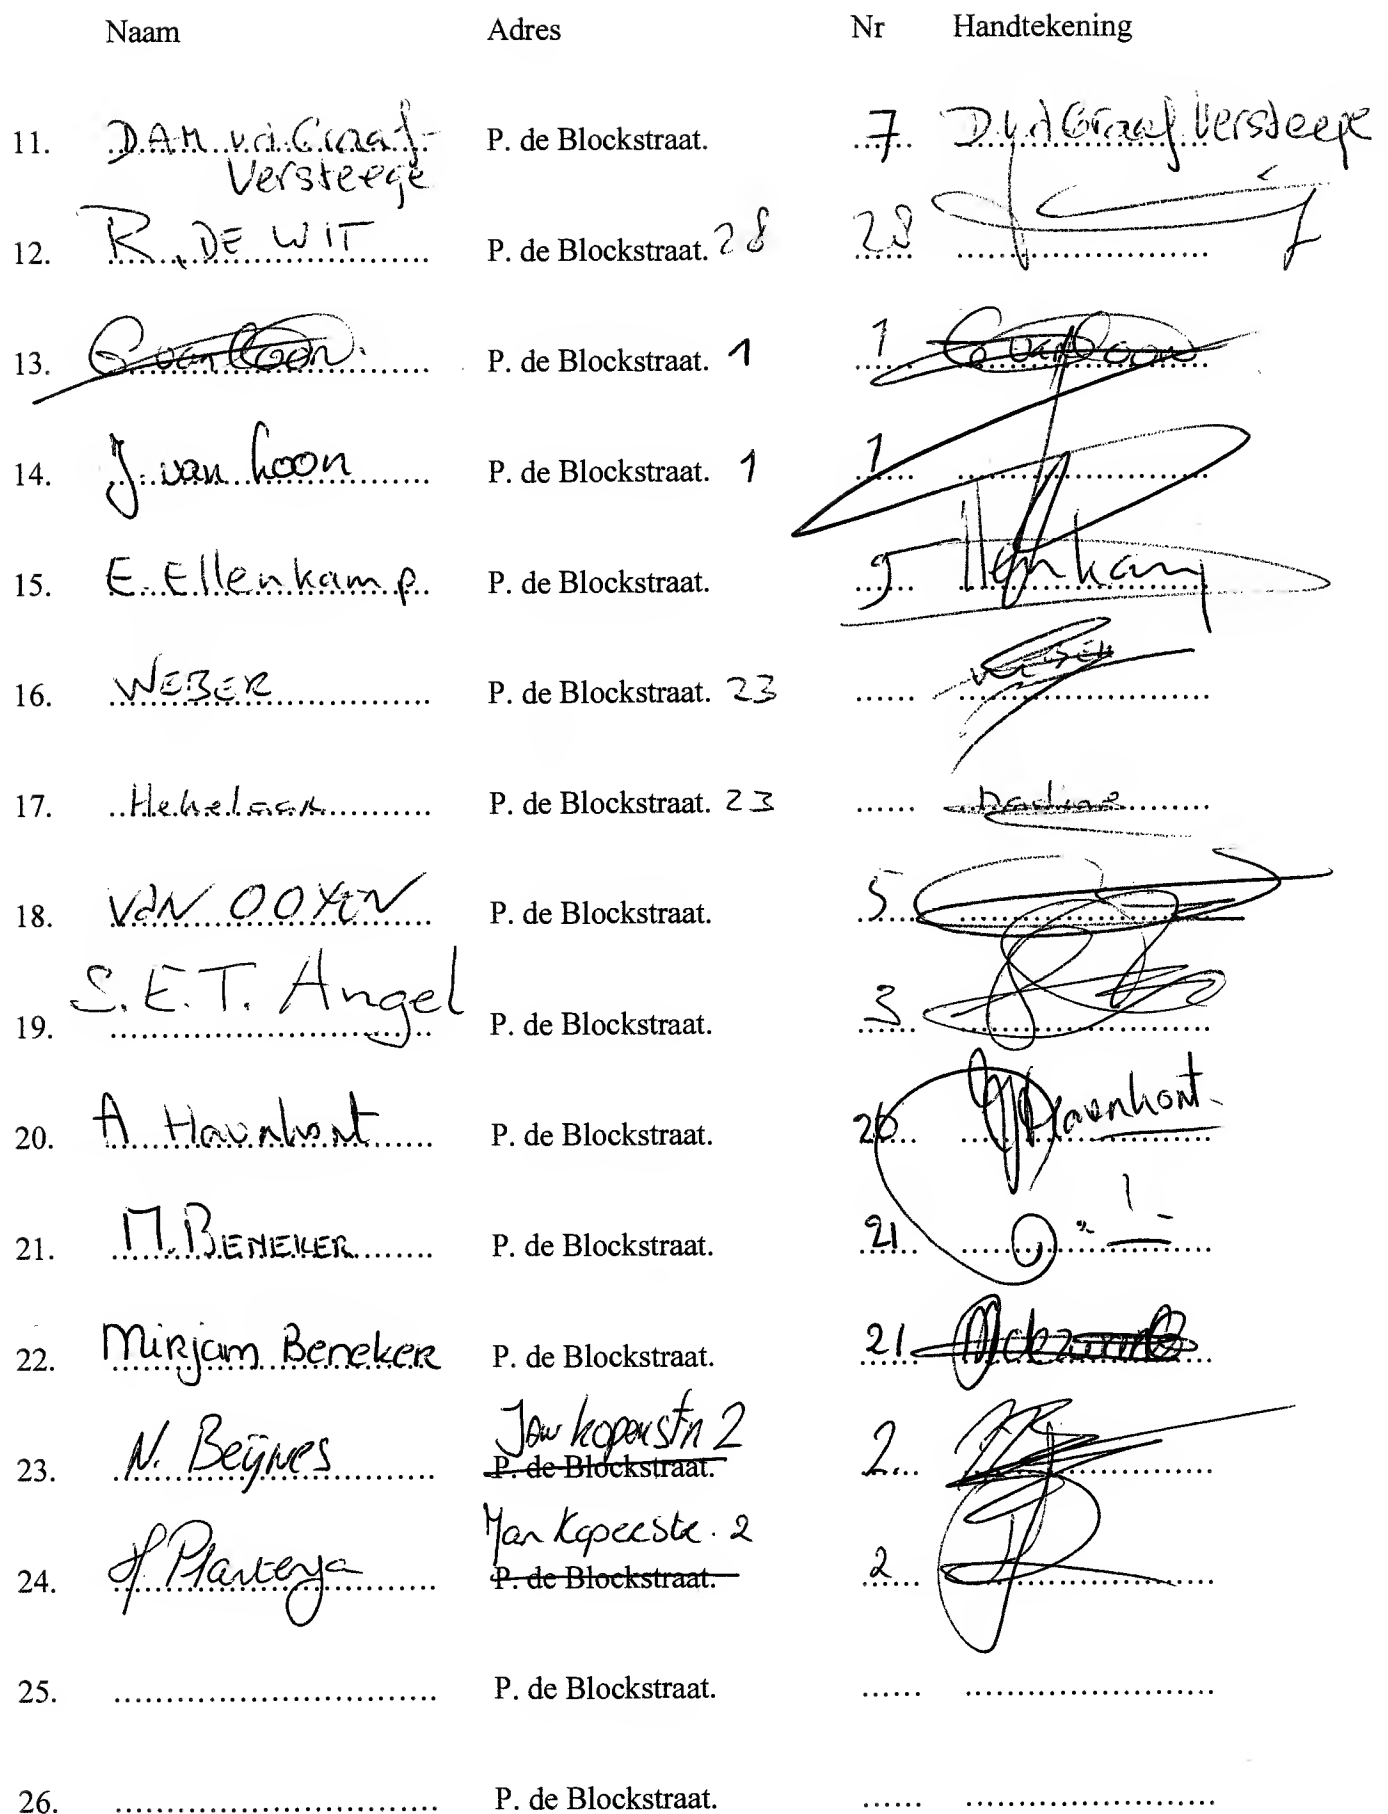 Naam Adres Nr Handtekening
11. DAM v.d. Graaf- P. de Blockstraat. 7 D v d Graaf Versteege
Versteege
12. R. DE WIT P. de Blockstraat. 28 28
13. G van Loon. P. de Blockstraat. 1 1 G van Loon
14. J. van Loon P. de Blockstraat. 1 1
15. E. Ellenkamp. P. de Blockstraat. 9
16. WEBER P. de Blockstraat. 23
17. Hekelaar P. de Blockstraat. 23 nadine
18. VAN OOYEN P. de Blockstraat. 5
19. S.E.T. Angel P. de Blockstraat. 3
20. A P. de Blockstraat. 20
21. M. BENEKER P. de Blockstraat. 21
22. Mirjam Beneker P. de Blockstraat. 21
2
23. N. Beijnes P. de Blockstraat. 2
2
24. P. de Blockstraat. 2
25. P. de Blockstraat.
26. P. de Blockstraat.